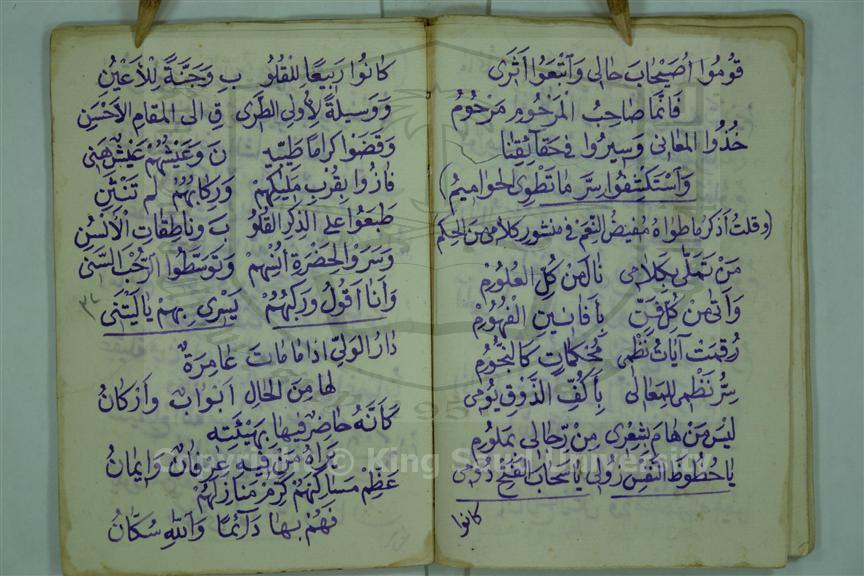 قُومُوا أُصَيْحَابَ حَالِى وَاتْبَعُوا أَثَرِى
فَإِنَّمَا صَاحِبُ المَرْحُومِ مَرْحُومُ
خُذُوا المَعَانِى وَسِيرُوا فِى حَقَائِقِنَا
وَاسْتَكْشِفُوا سِرَّ مَا تَطْوِى الحَوَامِيمُ)
(وقلتُ أذكر ما طواه مُفيضُ النِّعَم فى منشور كلامى من الحِكَم
مَنْ تَمَلَّى بِكَلَامِى نَالَ مِنْ كُلِّ العُلُومِ
وَأَتَى مِنْ كُلِّ فَنٍّ بِأَفَانِينِ الْفُهُومِ
رُقِمَتْ آيَاتُ نَظْمِى مُحْكَمَاتٍ كَالنُّجُومِ
سِرُّ نَظْمِى لِلْمَعَالِى بِأَكُفِّ الذَّوْقِ يُومِى
لَيْسَ مَنْ هَامَ بِشِعْرِى مِنْ رِجَالِى بِمَلُومِ
يَا حُظُوظَ النَّفْسِ زُولِى يَا سَحَابَ الفَتْحِ دُومِى
كانوا
كَانُوا رَبِيعًا لِلقُلُو بِ وَجَنَّةً لِلْأَعْيُنِ
وَوَسِيلَةً لِأُولِى الطَّرِى قِ الى المَقَامِ الأَحْسَنِ
وَقَضَوْا كِرَامًا طَيِّبِيـ نَ وَعَيْشُهُمْ عَيْشٌ هَنِى
فَازُوا بِقُرْبِ مَلِيكِهِمْ وَرِكَابُهُمْ لَمْ تَنْثَنِ
طَبَعُوا عَلَى الذِّكْرِ القُلُو بَ وَنَاطِقَاتِ الْأَلْسُنِ
وَسَرَوْا لِحَضْرَةِ أُنْسِهِمْ وَتَوَسَّطُوا الرَّحْبَ السَّنِى
وَأَنَا أَقُولُ وَرَكْبُهُمْ يَسْرِى بِهِمْ يَا لَيْتَنِى
دَارُ الوَلِىِّ اذَا مَا مَاتَ عَامِرَةٌ
لَهَا مِنَ الحَالِ أَبْوَابٌ وَأَرْكَانُ
كَأَنَّهُ حَاضِرٌ فِيهَا بِهَيْئَتِهِ
يَرَاهُ مَنْ فِيهِ عِرْفَانٌ وَإِيمَانُ
عَظِّمْ مَسَاكِنَهُمْ كَرِّمْ مَنَازِلَهُمْ
فَهُمْ بِهَا دَآئِمًا وَاللهِ سُكَّانُ